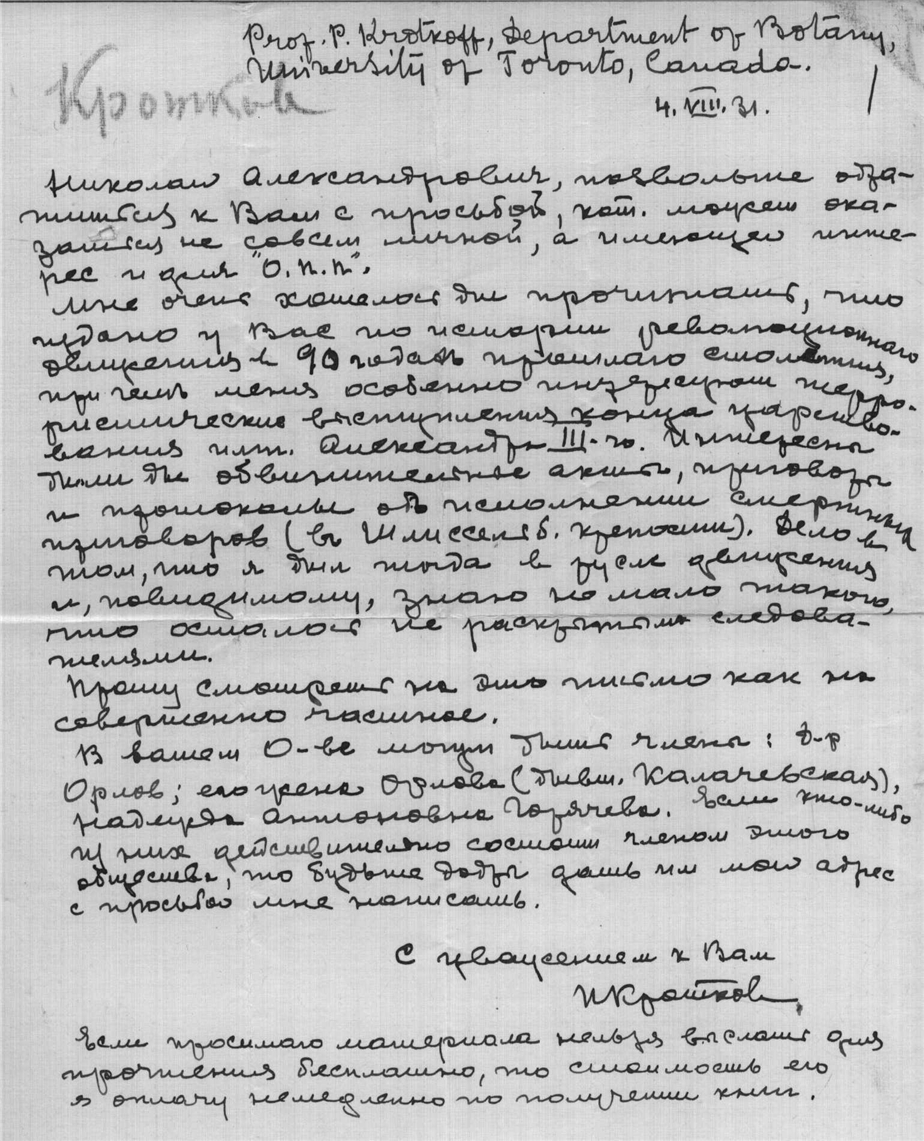 Prof. P. Krotkoff, Department of Botany,
University of Toronto, Canada.
Кротков
4. VIII. 31.
Николай Александрович, позвольте обра-
титься к Вам с просьбой, кот. может ока-
заться не совсем личной, а имеющей инте-
рес и для "О.П.П".
Мне очень хотелось бы прочитать, что
издано у Вас по истории революционнаго
движения в 90 годах прошлаго столетия,
при чемъ меня особенно интересуют терро-
ристические выступления конца царство-
вания имп. Александра III-го. Интересны
были бы обвинительные акты, приговоры
и протоколы объ исполнении смертных
приговоров (въ Шлиссельб. крепости). Дело в
том, что я был тогда в русле движения
и, повидимому, знаю не мало такого,
что осталось не раскрытым следова-
телями.
Прошу смотреть на это письмо как на
совершенно частное.
В вашем О-ве могут быть члены: д-р
Орлов; его жена Орлова (бывш. Калачевская),
Надежда Антоновна Горячева. Если кто-либо
из них действительно состоит членом этого
общества, то будьте добры дать им мой адрес
с просьбой мне написать.
С уважением к Вам
ПКротков
Если просимаго материала нельзя выслать для
прочтения бесплатно, то стоимость его
я оплачу немедленно по получении книг.